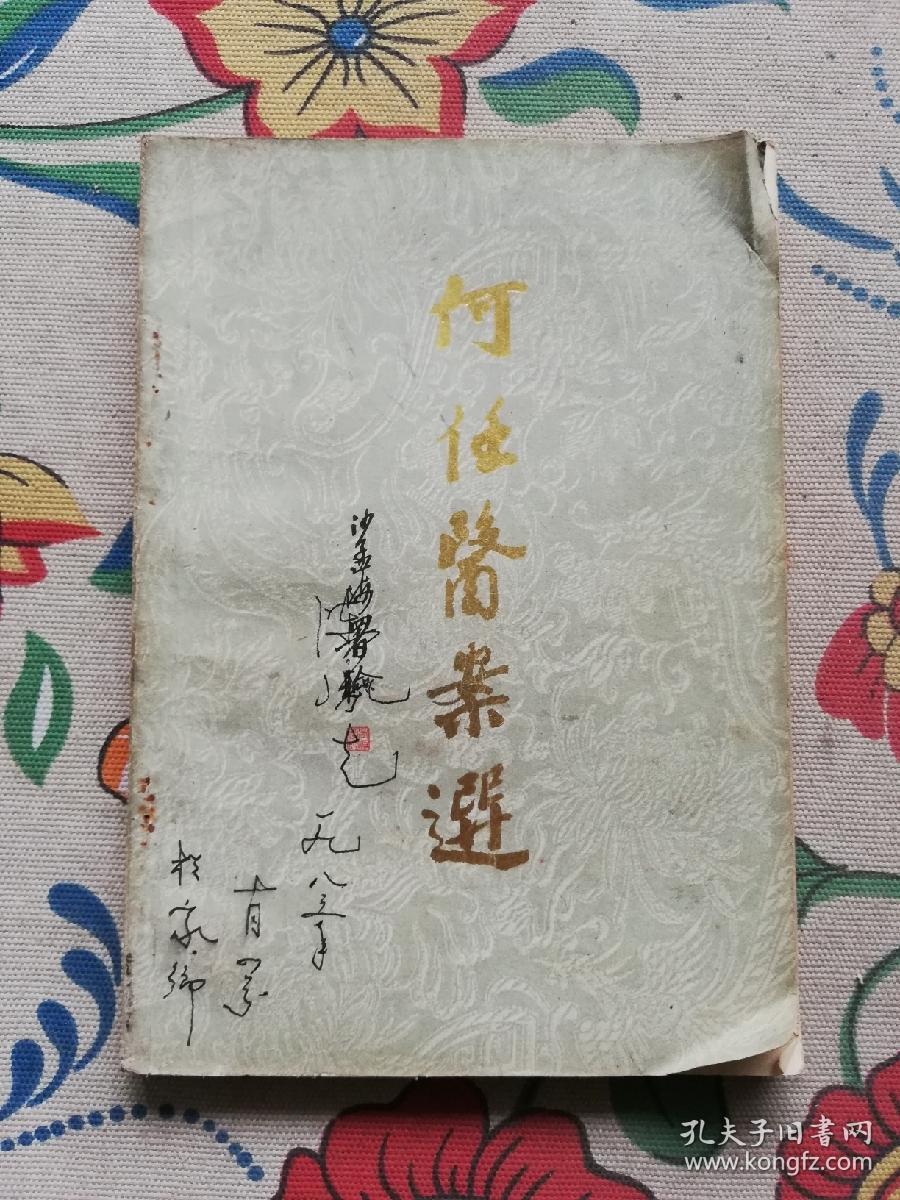 何任醫案選
沙孟海署
一九八三年
十月
於家鄉
孔夫子旧书网
www.kongfz.com